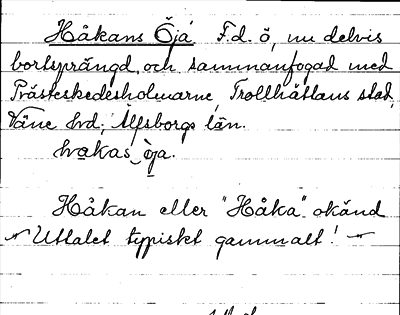 Håkans Öja F.d. ö, nu delvis
bortsprängd och sammanfogad med
Prästeskedesholmarne, Trollhättans stad,
Väne hd, Älfsborgs län.
hvakas öja.
Håkan eller "Håka" okänd
"Uttalet typiskt gammalt!"